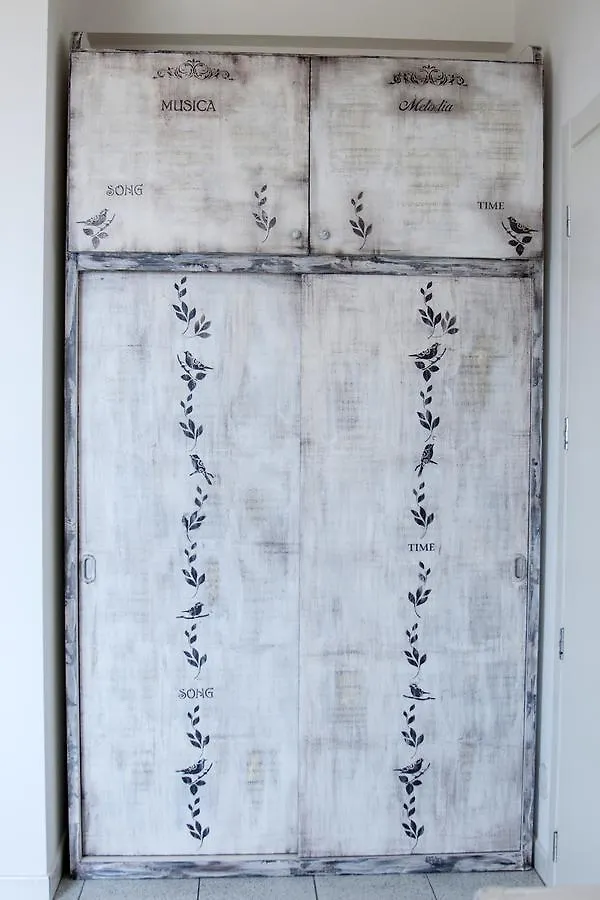 MUSICA
Melodia
SONG
TIME
TIME
SONG